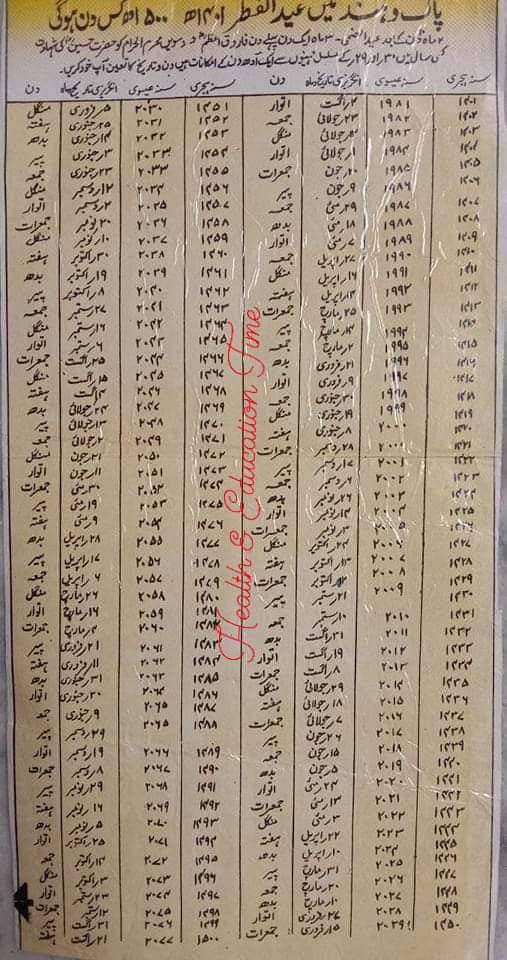 پاک و ہند میں عیدالفطر ۱۴۰۱ھ تا ۱۵۰۰ھ کس دن ہوگی
۲ ماہ ۱۰ دن کے بعد عیدالاضحیٰ۔ ۳ ماہ ایک دن پہلے یوم فاروق اعظم و دسویں محرم الحرام کو حضرت حسین کی شہادت
کسی سال میں ۳۰ اور ۲۹ کے مسلسل مہینوں سے ایک آدھ دن کے امکانات ہیں دن و تاریخ کا تعین آپ خود کریں
سنہ ہجری سنہ عیسوی انگریزی تاریخ ماہ دن
۱۴۰۱ ۱۹۸۱ ۲ اگست اتوار
۱۴۰۲ ۱۹۸۲ ۲۳ جولائی جمعہ
۱۴۰۳ ۱۹۸۳ ۱۲ جولائی منگل
۱۴۰۴ ۱۹۸۴ ۱ جولائی اتوار
۱۴۰۵ ۱۹۸۵ ۲۰ جون جمعرات
۱۴۰۶ ۱۹۸۶ ۹ جون پیر
۱۴۰۷ ۱۹۸۷ ۲۹ مئی جمعہ
۱۴۰۸ ۱۹۸۸ ۱۸ مئی بدھ
۱۴۰۹ ۱۹۸۹ ۷ مئی اتوار
۱۴۱۰ ۱۹۹۰ ۲۷ اپریل جمعہ
۱۴۱۱ ۱۹۹۱ ۱۶ اپریل منگل
۱۴۱۲ ۱۹۹۲ ۴ اپریل ہفتہ
۱۴۱۳ ۱۹۹۳ ۲۵ مارچ جمعرات
۱۴۱۴ ۱۹۹۴ ۱۴ مارچ پیر
۱۴۱۵ ۱۹۹۵ ۳ مارچ جمعہ
۱۴۱۶ ۱۹۹۶ ۲۱ فروری بدھ
۱۴۱۷ ۱۹۹۷ ۹ فروری اتوار
۱۴۱۸ ۱۹۹۸ ۳۰ جنوری جمعہ
۱۴۱۹ ۱۹۹۹ ۱۹ جنوری منگل
۱۴۲۰ ۲۰۰۰ ۸ جنوری ہفتہ
۱۴۲۱ ۲۰۰۰ ۲۸ دسمبر جمعرات
۱۴۲۲ ۲۰۰۱ ۱۷ دسمبر پیر
۱۴۲۳ ۲۰۰۲ ۶ دسمبر جمعہ
۱۴۲۴ ۲۰۰۳ ۲۶ نومبر بدھ
۱۴۲۵ ۲۰۰۴ ۱۴ نومبر اتوار
۱۴۲۶ ۲۰۰۵ ۳ نومبر جمعرات
۱۴۲۷ ۲۰۰۶ ۲۴ اکتوبر منگل
۱۴۲۸ ۲۰۰۷ ۱۳ اکتوبر ہفتہ
۱۴۲۹ ۲۰۰۸ ۲ اکتوبر جمعرات
۱۴۳۰ ۲۰۰۹ ۲۱ ستمبر پیر
۱۴۳۱ ۲۰۱۰ ۱۰ ستمبر جمعہ
۱۴۳۲ ۲۰۱۱ ۳۱ اگست بدھ
۱۴۳۳ ۲۰۱۲ ۱۹ اگست اتوار
۱۴۳۴ ۲۰۱۳ ۸ اگست جمعرات
۱۴۳۵ ۲۰۱۴ ۲۹ جولائی منگل
۱۴۳۶ ۲۰۱۵ ۱۸ جولائی ہفتہ
۱۴۳۷ ۲۰۱۶ ۷ جولائی جمعرات
۱۴۳۸ ۲۰۱۷ ۲۶ جون پیر
۱۴۳۹ ۲۰۱۸ ۱۵ جون جمعہ
۱۴۴۰ ۲۰۱۹ ۵ جون بدھ
۱۴۴۱ ۲۰۲۰ ۲۴ مئی اتوار
۱۴۴۲ ۲۰۲۱ ۱۳ مئی جمعرات
۱۴۴۳ ۲۰۲۲ ۳ مئی منگل
۱۴۴۴ ۲۰۲۳ ۲۲ اپریل ہفتہ
۱۴۴۵ ۲۰۲۴ ۱۰ اپریل بدھ
۱۴۴۶ ۲۰۲۵ ۳۱ مارچ پیر
۱۴۴۷ ۲۰۲۶ ۲۰ مارچ جمعہ
۱۴۴۸ ۲۰۲۷ ۱۰ مارچ بدھ
۱۴۴۹ ۲۰۲۸ ۲۷ فروری اتوار
۱۴۵۰ ۲۰۲۹ ۱۵ فروری جمعرات
سنہ ہجری سنہ عیسوی انگریزی تاریخ ماہ دن
۱۴۵۱ ۲۰۳۰ ۵ فروری منگل
۱۴۵۲ ۲۰۳۱ ۲۵ جنوری ہفتہ
۱۴۵۳ ۲۰۳۲ ۱۴ جنوری بدھ
۱۴۵۴ ۲۰۳۳ ۳ جنوری پیر
۱۴۵۵ ۲۰۳۳ ۲۳ جنوری جمعہ
۱۴۵۶ ۲۰۳۴ ۱۲ دسمبر منگل
۱۴۵۷ ۲۰۳۵ ۲ دسمبر اتوار
۱۴۵۸ ۲۰۳۶ ۲۰ نومبر جمعرات
۱۴۵۹ ۲۰۳۷ ۱۰ نومبر منگل
۱۴۶۰ ۲۰۳۸ ۳۰ اکتوبر ہفتہ
۱۴۶۱ ۲۰۳۹ ۱۹ اکتوبر بدھ
۱۴۶۲ ۲۰۴۰ ۸ اکتوبر پیر
۱۴۶۳ ۲۰۴۱ ۲۷ ستمبر جمعہ
۱۴۶۴ ۲۰۴۲ ۱۶ ستمبر منگل
۱۴۶۵ ۲۰۴۳ ۶ ستمبر اتوار
۱۴۶۶ ۲۰۴۴ ۲۵ اگست جمعرات
۱۴۶۷ ۲۰۴۵ ۱۵ اگست منگل
۱۴۶۸ ۲۰۴۶ ۴ اگست ہفتہ
۱۴۶۹ ۲۰۴۷ ۲۴ جولائی بدھ
۱۴۷۰ ۲۰۴۸ ۱۳ جولائی پیر
۱۴۷۱ ۲۰۴۹ ۲ جولائی جمعہ
۱۴۷۲ ۲۰۵۰ ۲۱ جون منگل
۱۴۷۳ ۲۰۵۱ ۱۱ جون اتوار
۱۴۷۴ ۲۰۵۲ ۳۰ مئی جمعرات
۱۴۷۵ ۲۰۵۳ ۱۹ مئی پیر
۱۴۷۶ ۲۰۵۴ ۹ مئی ہفتہ
۱۴۷۷ ۲۰۵۵ ۲۸ اپریل بدھ
۱۴۷۸ ۲۰۵۶ ۱۷ اپریل پیر
۱۴۷۹ ۲۰۵۷ ۶ اپریل جمعہ
۱۴۸۰ ۲۰۵۸ ۲۶ مارچ منگل
۱۴۸۱ ۲۰۵۹ ۱۶ مارچ اتوار
۱۴۸۲ ۲۰۶۰ ۴ مارچ جمعرات
۱۴۸۳ ۲۰۶۱ ۲۱ فروری پیر
۱۴۸۴ ۲۰۶۲ ۱۱ فروری ہفتہ
۱۴۸۵ ۲۰۶۳ ۳۱ جنوری بدھ
۱۴۸۶ ۲۰۶۴ ۲۰ جنوری اتوار
۱۴۸۷ ۲۰۶۵ ۹ جنوری جمعہ
۱۴۸۸ ۲۰۶۵ ۲۹ دسمبر پیر
۱۴۸۹ ۲۰۶۶ ۱۹ دسمبر اتوار
۱۴۹۰ ۲۰۶۷ ۸ دسمبر جمعرات
۱۴۹۱ ۲۰۶۸ ۲۹ نومبر پیر
۱۴۹۲ ۲۰۶۹ ۱۶ نومبر ہفتہ
۱۴۹۳ ۲۰۷۰ ۵ نومبر بدھ
۱۴۹۴ ۲۰۷۱ ۲۵ اکتوبر اتوار
۱۴۹۵ ۲۰۷۲ ۱۴ اکتوبر جمعہ
۱۴۹۶ ۲۰۷۳ ۳ اکتوبر منگل
۱۴۹۷ ۲۰۷۴ ۲۳ ستمبر اتوار
۱۴۹۸ ۲۰۷۵ ۱۲ ستمبر جمعرات
۱۴۹۹ ۲۰۷۶ ۳۱ اگست پیر
۱۵۰۰ ۲۰۷۷ ۲۱ اگست ہفتہ
Health & Education Time